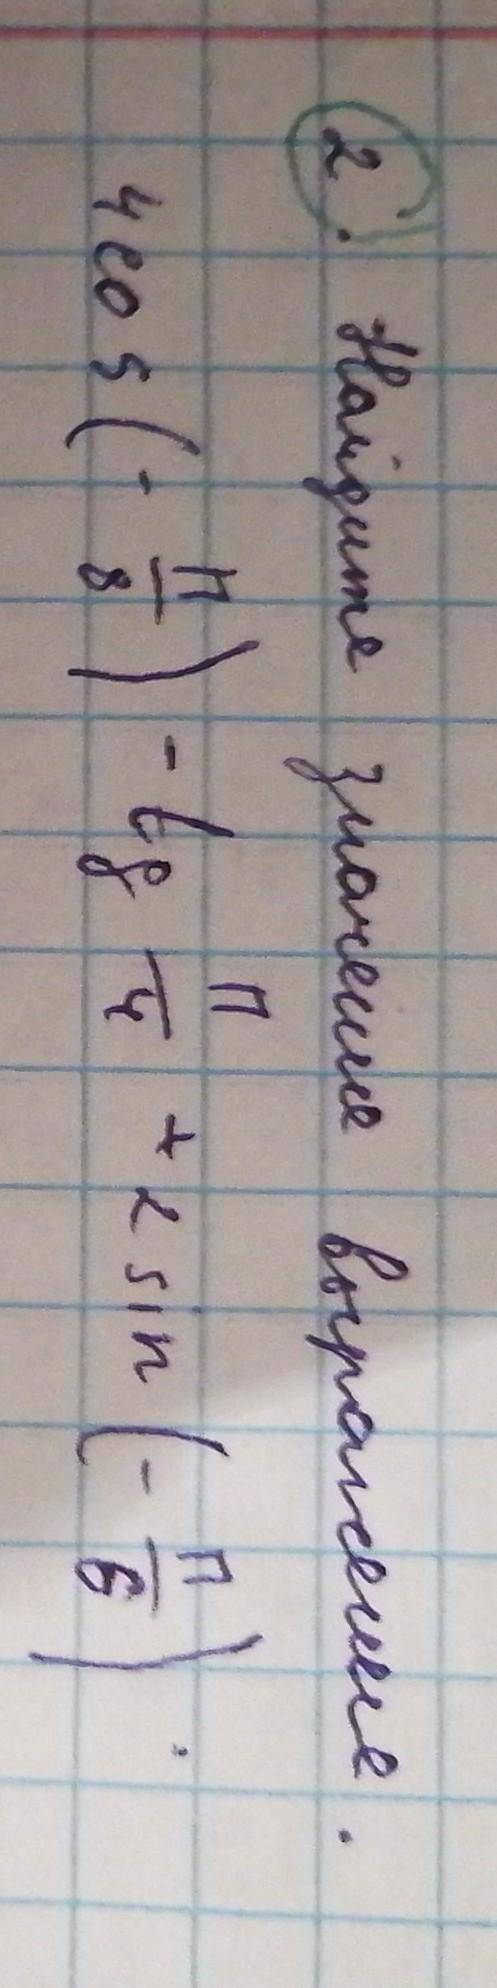 2. Найдите значение выражения.
4cos(-π/8) - tg π/4 + 2sin(-π/6).